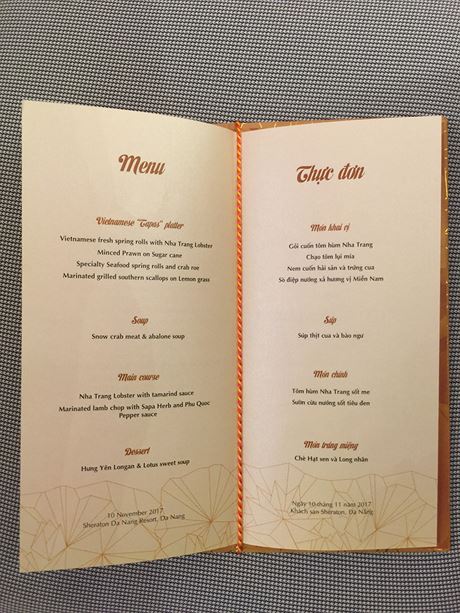 Menu
Vietnamese "Tapas" platter
Vietnamese fresh spring rolls with Nha Trang Lobster
Minced Prawn on Sugar cane
Specialty Seafood spring rolls and crab roe
Marinated grilled southern scallops on Lemon grass
Soup
Snow crab meat & abalone soup
Main course
Nha Trang Lobster with tamarind sauce
Marinated lamb chop with Sapa Herb and Phu Quoc
Pepper sauce
Dessert
Hung Yên Longan & Lotus sweet soup
10 November 2017
Sheraton Da Nang Resort, Da Nang
Thực đơn
Món khai vị
Gỏi cuốn tôm hùm Nha Trang
Chạo tôm lụi mía
Nem cuốn hải sản và trứng cua
Sò điệp nướng xả hương vị Miền Nam
Súp
Súp thịt cua và bào ngư
Món chính
Tôm hùm Nha Trang sốt me
Sườn cừu nướng sốt tiêu đen
Món tráng miệng
Chè Hạt sen và Long nhãn
Ngày 10 tháng 11 năm 2017
Khách sạn Sheraton, Đà Nẵng